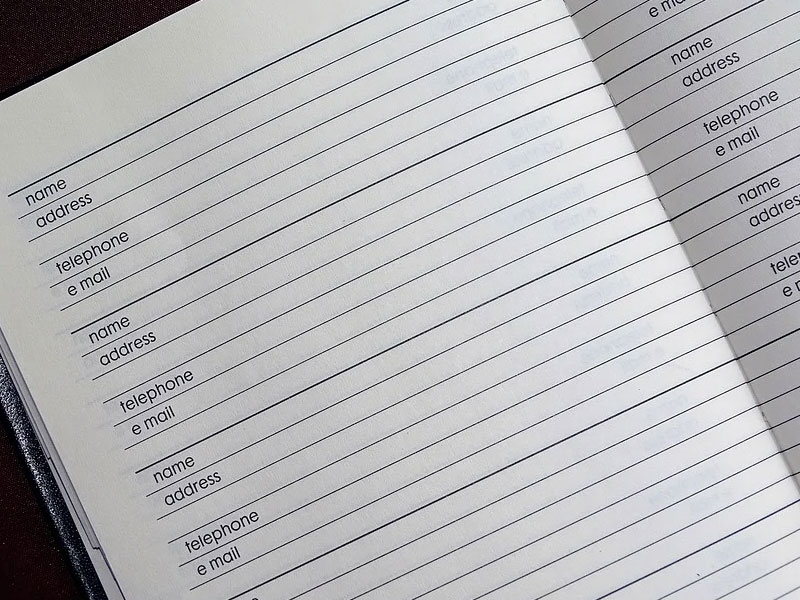 name
address
telephone
e mail
name
address
telephone
e mail
name
address
telephone
e mail
name
address
telephone
e mail
name